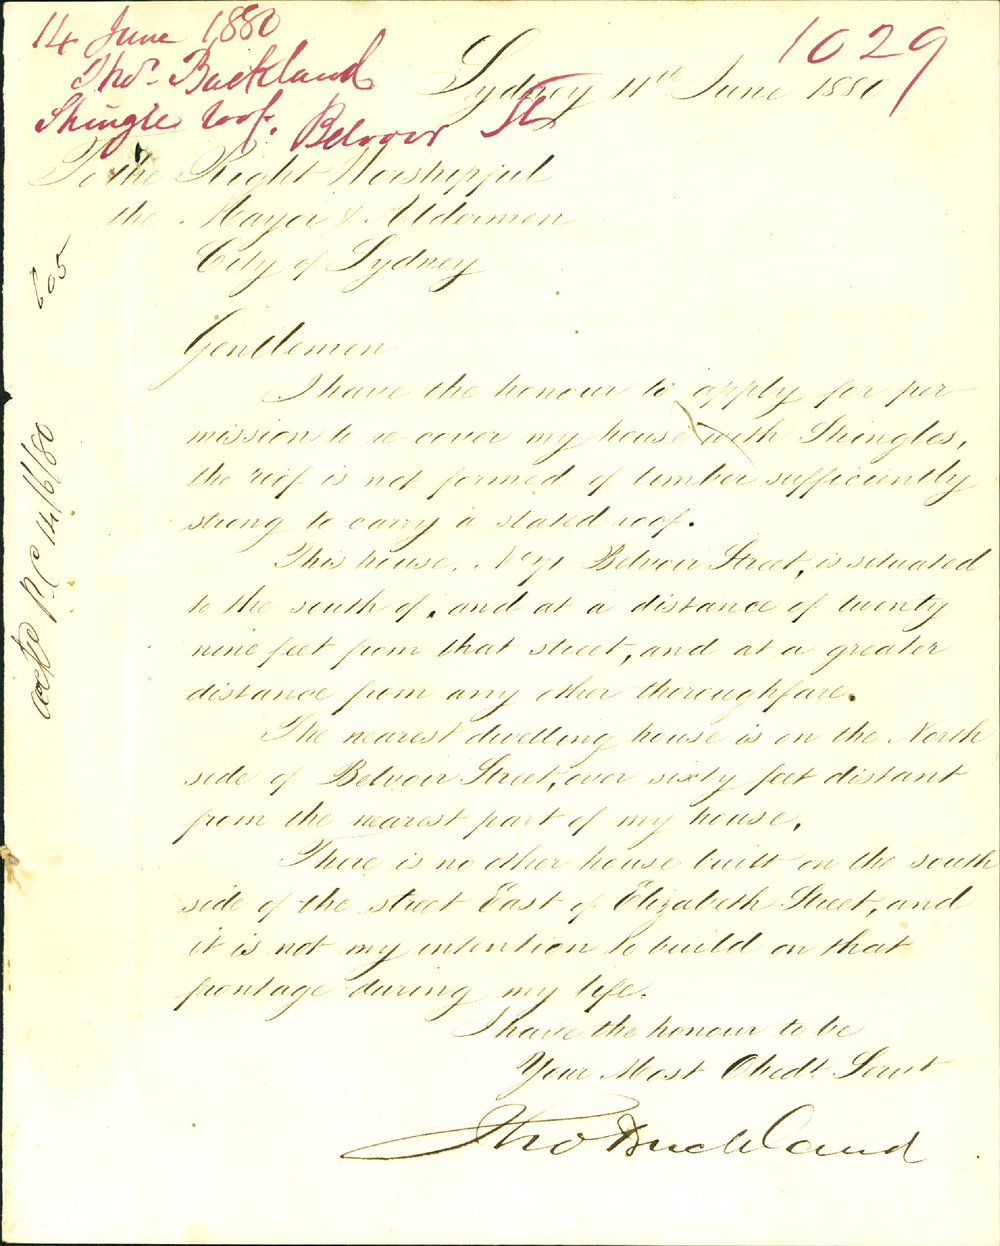 14 June 1880
Thos. Buckland
Shingle roof. Belvoir St
1029
Sydney 11th June 1880
To the Right Worshipful
the Mayor & Aldermen
City of Sydney
605
Gentlemen
I have the honour to apply for per-
mission to re-cover my house with Shingles,
the roof is not formed of timber sufficiently
strong to carry a slated roof.
This house, No 71 Belvoir Street, is situated
to the south of, and at a distance of twenty
nine feet from that street, and at a greater
distance from any other thoroughfare.
The nearest dwelling house is on the North
side of Belvoir Street, over sixty feet distant
from the nearest part of my house.
There is no other house built on the south
side of the street East of Elizabeth Street, and
it is not my intention to build on that
frontage during my life.
I have the honour to be
Your Most Obedt. Servt
Tho Buckland
14/6/80